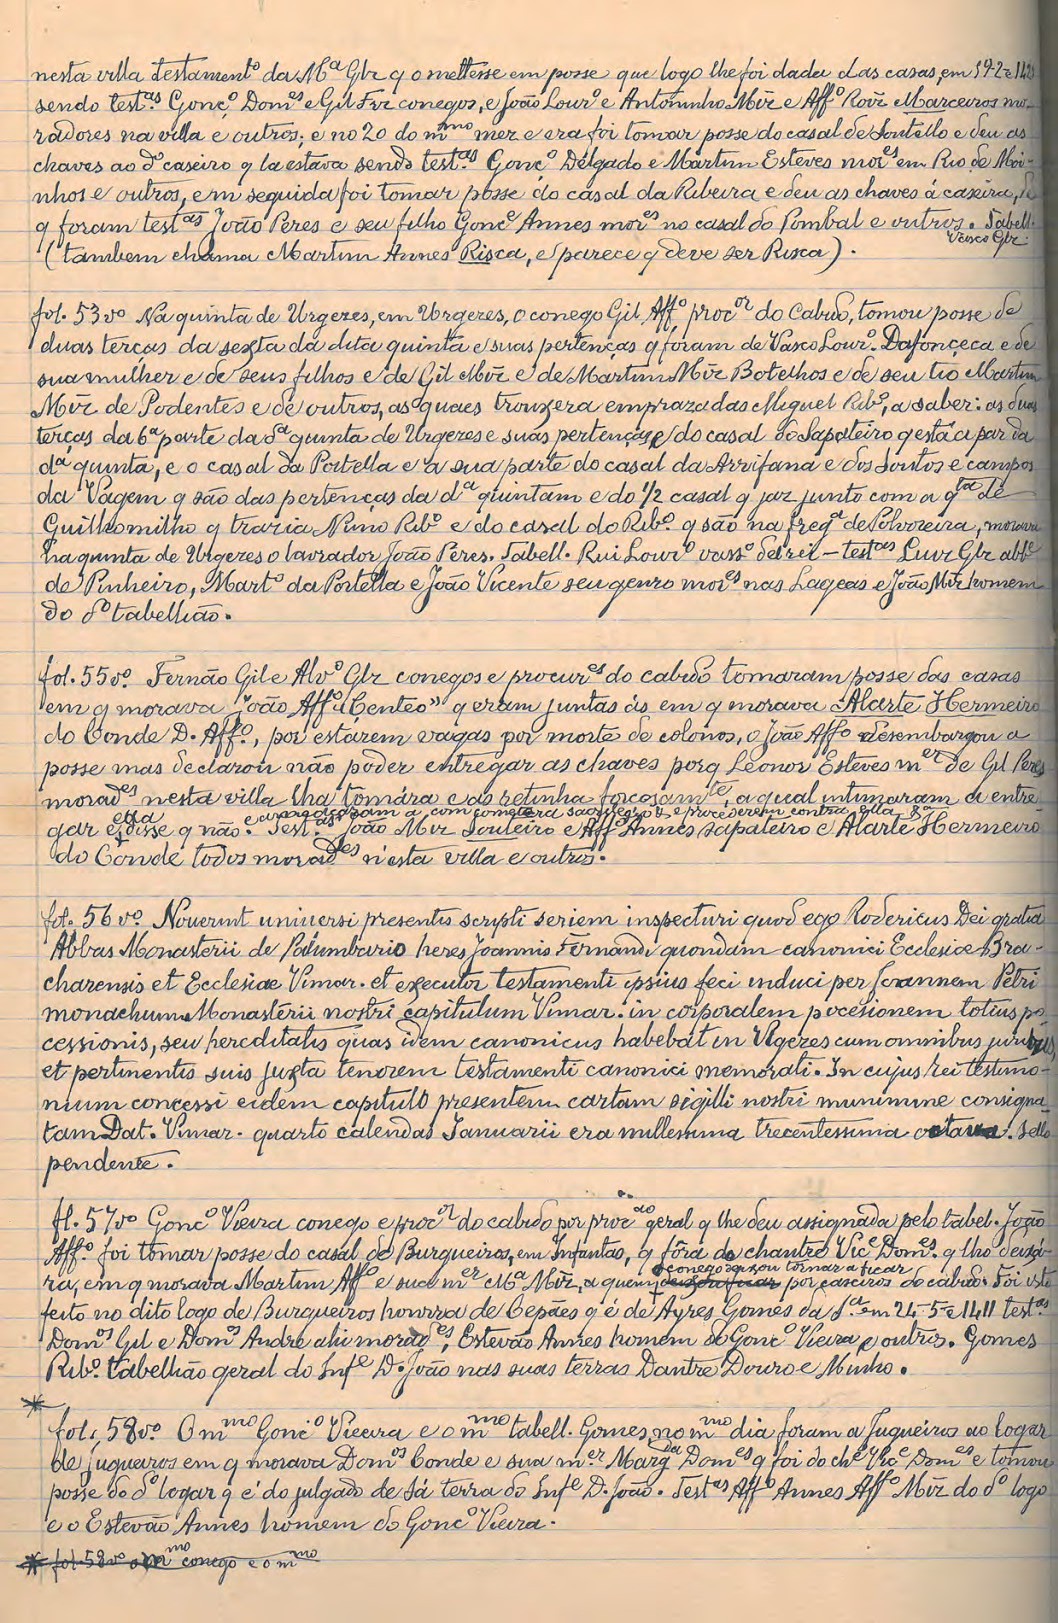 nesta villa testamentº da Mª Glz q o mettesse em posse que logo lhe foi dada das casas, em 19-2-e 14
sendo test.as Gonçº Dom.es e Gil Frz conegos, e João Lour.º e Antoninho Miz e Aff.º Roiz Marceiros mo-
radores na villa e outros; e no 20 do m.mo mez e era foi tomar posse do casal de Soutello e deu as
chaves ao dº caseiro q la estava sendo test.as Gonçº Delgado e Martim Esteves mor.es em Rio de Moi-
nhos e outros, e em seguida foi tomar posse do casal da Ribeira e deu as chaves á caseira, de
q foram test.as João Peres e seu filho Gonçº Annes mor.es no casal do Pombal e outros. Tabell.
Vasco Glz.
(tambem chama Martim Annes Risca, e parece q deve ser Risca).
fol. 53vº Na quinta de Urgezes, em Urgezes, o conego Gil Aff.º proc.or do Cabido, tomou posse de
duas terças da sexta da dita quinta e suas pertenças q foram de Vasco Lour.º Dafonceca e de
sua mulher e de seus filhos e de Gil Miz e de Martim Miz Botelhos e de seu tio Martim
Miz de Podentes e de outros, as quaes trouxera emprazadas Miguel Rib.º, a saber: as duas
terças da 6ª parte da dª quinta de Urgezes e suas pertenças, e do casal do Sapateiro q está a par da
dª quinta, e o casal da Portella e a sua parte do casal da Arrifana e dos Soutos e campos
da Vagem q são das pertenças da dª quintam e do 1/2 casal q jaz junto com a q.ta de
Guilhomilho q trazia Nuno Rib.º e do casal do Rib.º q são na freg.ª de Polvoreira, morava
na quinta de Urgezes o lavrador João Peres. Tabell. Rui Lour.º vass.º delrei - test.as Luiz Glz abb.e
de Pinheiro, Mart.º da Portella e João Vicente seu genro mor.es nas Lageas e João Miz homem
do dº tabellião.
fol. 55vº. Fernão Gil e Alvº Glz conegos e procur.es do cabido tomaram posse das casas
em q morava João Aff.º "Centeo" q eram juntas ás em q morava Alarte Hermeiro
do Conde D. Aff.º, por estarem vagas por morte de colonos, o João Aff.º desembargou a
posse mas declarou não poder entregar as chaves porq Leonor Esteves m.er de Gil Peres
morad.es nesta villa lha tomára e as retinha forçosam.te, a qual intimaram a entre-
ella e ameaçaram a com
gar e disse q não. Test.as João Miz Souteiro e Aff.º Annes sapateiro e Alarte Hermeiro
do Conde todos morad.es n'esta villa e outros.
fol. 56vº. Noverint universi presentis scripti seriem inspecturi quod ego Rodericus Dei gratia
Abbas Monasterii de Palumbario heres Joannis Fernandi quondam canonici Ecclesiae Bra-
charensis et Ecclesiae Vimar. et executor testamenti ipsius feci induci per Joannem Petri
monachum Monasterii nostri capitulum Vimar. in corporalem pocesionem totius po-
cessionis, seu hereditatis quas idem canonicus habebat in Ugezes cum omnibus juribus
et pertinentis suis juxta tenorem testamenti canonici memorati. In cujus rei testimo-
nium concessi eidem capitulo presentem cartam sigilli nostri munimine consigna-
tam Dat. Vimar. quarto calendas Januarii era millessima trecentessima octava. Sello
pendente.
fl. 57vº Gonçº Vieira conego e proc.or do cabido por proc.ão geral q lhe deu assignada pelo tabel. João
Aff.º foi tomar posse do casal de Burgueiros, em Infantas, q fôra do chantre Vic.e Dom.es q lho deixá-
o conego deixou tornar a ficar
ra, em q morava Martim Aff.º e sua m.er Mª Miz, a quem por caseiros do cabido. Foi isto
feito no dito logo de Burgueiros honrra de Cepães q é de Ayres Gomes da S.ª em 24-5-e 1411 test.as
Dom.os Gil e Dom.os André ahi morad.es, Estevão Annes homem de Gonçº Vieira e outros. Gomes
Rib.º tabellião geral do Inf.e D. João nas suas terras Dantre Douro e Minho.
* fol. 58vº. O m.mo Gonçº Vieira e o m.mo tabell. Gomes, no m.mo dia foram a Jugueiros ao logar
de Jugueiros em q morava Dom.os Conde e sua m.er Marg.da Dom.es q foi do ch.e Vic.e Dom.es e tomou
posse do dº logar q é do julgado de Sá terra do Inf.e D. João. Test.as Aff.º Annes Aff.º Miz do dº logo
e o Estevão Annes homem do Gonçº Vieira.
* fol. 58vº o m.mo conego e o m.mo